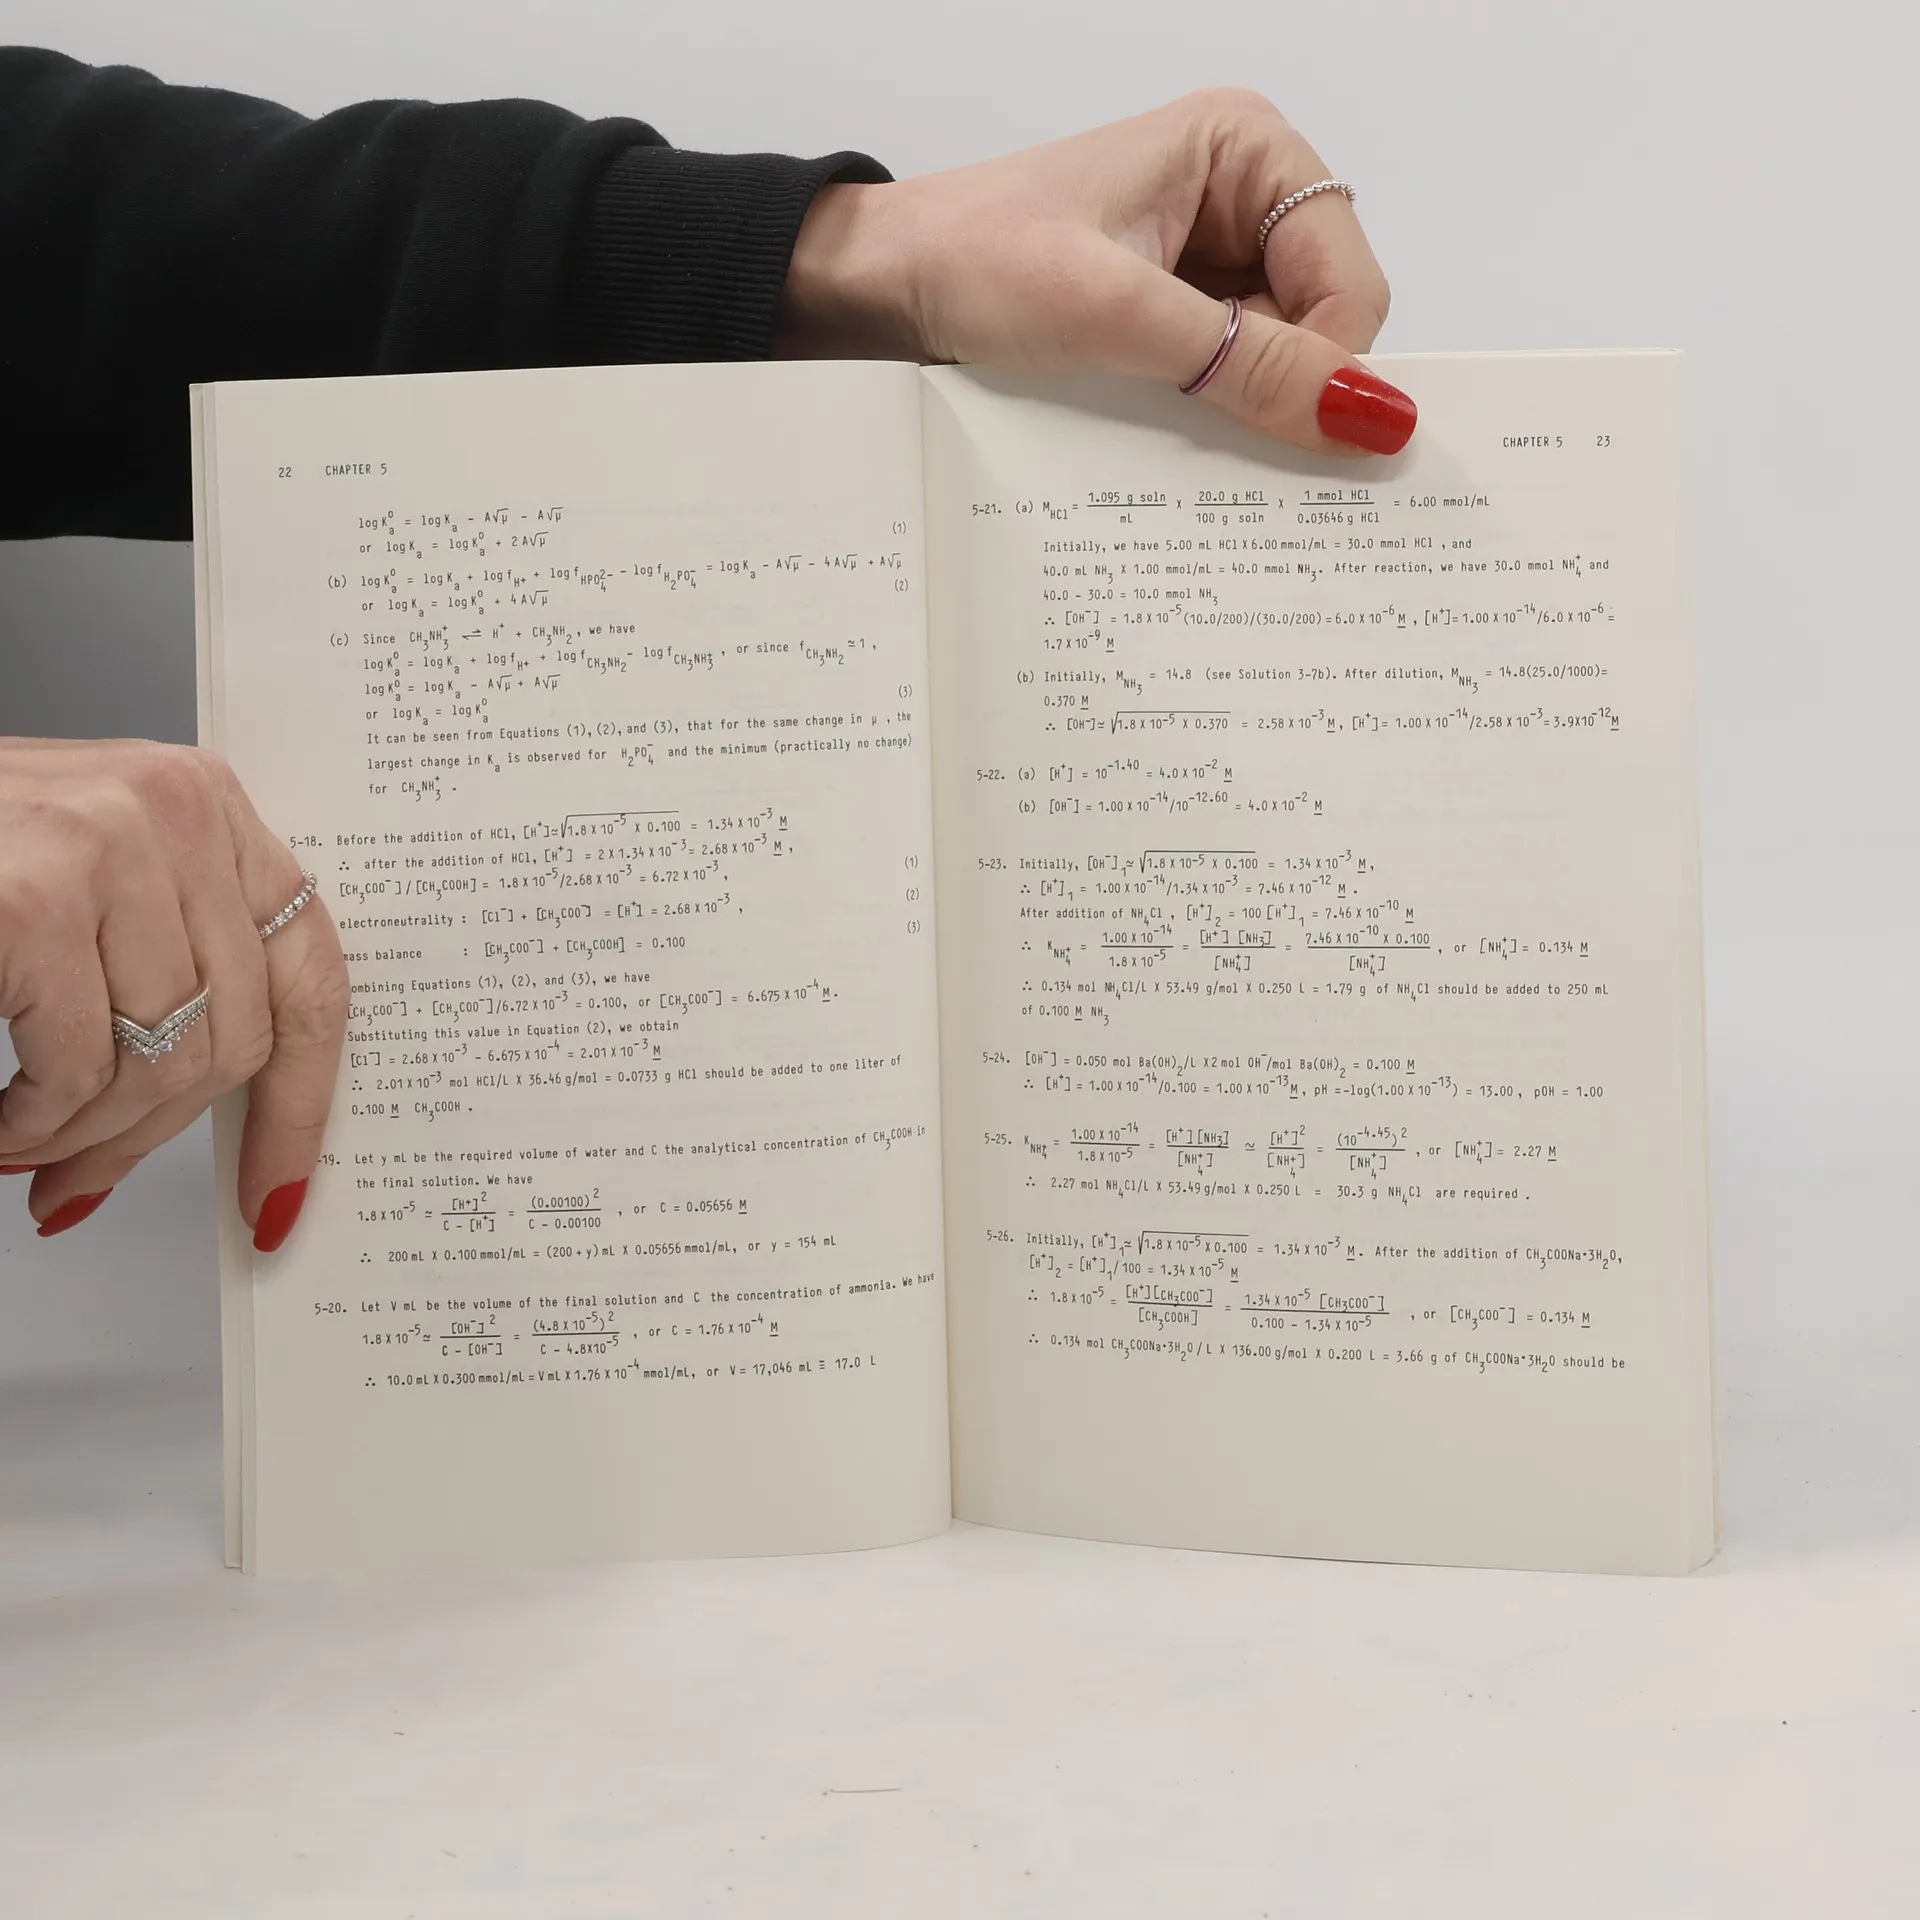 22 CHAPTER 5
log Kₐ⁰ = log Kₐ - A√μ - A√μ
or log Kₐ = log Kₐ⁰ + 2 A√μ (1)
(b) log Kₐ⁰ = log Kₐ + log f_H+ + log f_HPO₄²⁻ - log f_H₂PO₄⁻ = log Kₐ - A√μ - 4 A√μ + A√μ
or log Kₐ = log Kₐ⁰ + 4 A√μ (2)
(c) Since CH₃NH₃⁺ ⇌ H⁺ + CH₃NH₂, we have
log Kₐ⁰ = log Kₐ + log f_H+ + log f_CH₃NH₂ - log f_CH₃NH₃⁺, or since f_CH₃NH₂ ≃ 1,
log Kₐ⁰ = log Kₐ - A√μ + A√μ
or log Kₐ = log Kₐ⁰ (3)
It can be seen from Equations (1), (2), and (3), that for the same change in μ, the
largest change in Kₐ is observed for H₂PO₄⁻ and the minimum (practically no change)
for CH₃NH₃⁺.
5-18. Before the addition of HCl, [H⁺] ≃ √1.8 X 10⁻⁵ X 0.100 = 1.34 X 10⁻³ M
∴ after the addition of HCl, [H⁺] = 2 X 1.34 X 10⁻³ = 2.68 X 10⁻³ M,
[CH₃COO⁻] / [CH₃COOH] = 1.8 X 10⁻⁵/2.68 X 10⁻³ = 6.72 X 10⁻³, (1)
electroneutrality : [Cl⁻] + [CH₃COO⁻] = [H⁺] = 2.68 X 10⁻³, (2)
mass balance : [CH₃COO⁻] + [CH₃COOH] = 0.100 (3)
ombining Equations (1), (2), and (3), we have
[CH₃COO⁻] + [CH₃COO⁻]/6.72 X 10⁻³ = 0.100, or [CH₃COO⁻] = 6.675 X 10⁻⁴ M.
Substituting this value in Equation (2), we obtain
[Cl⁻] = 2.68 X 10⁻³ - 6.675 X 10⁻⁴ = 2.01 X 10⁻³ M
∴ 2.01 X 10⁻³ mol HCl/L X 36.46 g/mol = 0.0733 g HCl should be added to one liter of
0.100 M CH₃COOH.
-19. Let y mL be the required volume of water and C the analytical concentration of CH₃COOH in
the final solution. We have
1.8 X 10⁻⁵ ≃ [H⁺]² / C - [H⁺] = (0.00100)² / C - 0.00100, or C = 0.05656 M
∴ 200 mL X 0.100 mmol/mL = (200 + y) mL X 0.05656 mmol/mL, or y = 154 mL
5-20. Let V mL be the volume of the final solution and C the concentration of ammonia. We have
1.8 X 10⁻⁵ ≃ [OH⁻]² / C - [OH⁻] = (4.8 X 10⁻⁵)² / C - 4.8X10⁻⁵, or C = 1.76 X 10⁻⁴ M
∴ 10.0 mL X 0.300 mmol/mL = V mL X 1.76 X 10⁻⁴ mmol/mL, or V = 17,046 mL ≡ 17.0 L
CHAPTER 5 23
5-21. (a) M_HCl = 1.095 g soln / mL X 20.0 g HCl / 100 g soln X 1 mmol HCl / 0.03646 g HCl = 6.00 mmol/mL
Initially, we have 5.00 mL HCl X 6.00 mmol/mL = 30.0 mmol HCl, and
40.0 mL NH₃ X 1.00 mmol/mL = 40.0 mmol NH₃. After reaction, we have 30.0 mmol NH₄⁺ and
40.0 - 30.0 = 10.0 mmol NH₃
∴ [OH⁻] = 1.8 X 10⁻⁵(10.0/200)/(30.0/200) = 6.0 X 10⁻⁶ M, [H⁺] = 1.00 X 10⁻¹⁴/6.0 X 10⁻⁶ =
1.7 X 10⁻⁹ M
(b) Initially, M_NH₃ = 14.8 (see Solution 3-7b). After dilution, M_NH₃ = 14.8(25.0/1000)=
0.370 M
∴ [OH⁻] ≃ √1.8 X 10⁻⁵ X 0.370 = 2.58 X 10⁻³ M, [H⁺] = 1.00 X 10⁻¹⁴/2.58 X 10⁻³ = 3.9X10⁻¹² M
5-22. (a) [H⁺] = 10⁻¹·⁴⁰ = 4.0 X 10⁻² M
(b) [OH⁻] = 1.00 X 10⁻¹⁴/10⁻¹²·⁶⁰ = 4.0 X 10⁻² M
5-23. Initially, [OH⁻]₁ ≃ √1.8 X 10⁻⁵ X 0.100 = 1.34 X 10⁻³ M,
∴ [H⁺]₁ = 1.00 X 10⁻¹⁴/1.34 X 10⁻³ = 7.46 X 10⁻¹² M.
After addition of NH₄Cl, [H⁺]₂ = 100 [H⁺]₁ = 7.46 X 10⁻¹⁰ M
∴ K_NH₄⁺ = 1.00 X 10⁻¹⁴ / 1.8 X 10⁻⁵ = [H⁺] [NH₃] / [NH₄⁺] = 7.46 X 10⁻¹⁰ X 0.100 / [NH₄⁺], or [NH₄⁺] = 0.134 M
∴ 0.134 mol NH₄Cl/L X 53.49 g/mol X 0.250 L = 1.79 g of NH₄Cl should be added to 250 mL
of 0.100 M NH₃
5-24. [OH⁻] = 0.050 mol Ba(OH)₂/L X 2 mol OH⁻/mol Ba(OH)₂ = 0.100 M
∴ [H⁺] = 1.00 X 10⁻¹⁴/0.100 = 1.00 X 10⁻¹³ M, pH = -log(1.00 X 10⁻¹³) = 13.00, pOH = 1.00
5-25. K_NH₄⁺ = 1.00 X 10⁻¹⁴ / 1.8 X 10⁻⁵ = [H⁺] [NH₃] / [NH₄⁺] ≃ [H⁺]² / [NH₄⁺] = (10⁻⁴·⁴⁵)² / [NH₄⁺], or [NH₄⁺] = 2.27 M
∴ 2.27 mol NH₄Cl/L X 53.49 g/mol X 0.250 L = 30.3 g NH₄Cl are required.
5-26. Initially, [H⁺]₁ ≃ √1.8 X 10⁻⁵ X 0.100 = 1.34 X 10⁻³ M. After the addition of CH₃COONa·3H₂O,
[H⁺]₂ = [H⁺]₁/100 = 1.34 X 10⁻⁵ M
∴ 1.8 X 10⁻⁵ = [H⁺][CH₃COO⁻] / [CH₃COOH] = 1.34 X 10⁻⁵ [CH₃COO⁻] / 0.100 - 1.34 X 10⁻⁵, or [CH₃COO⁻] = 0.134 M
∴ 0.134 mol CH₃COONa·3H₂O / L X 136.00 g/mol X 0.200 L = 3.66 g of CH₃COONa·3H₂O should be